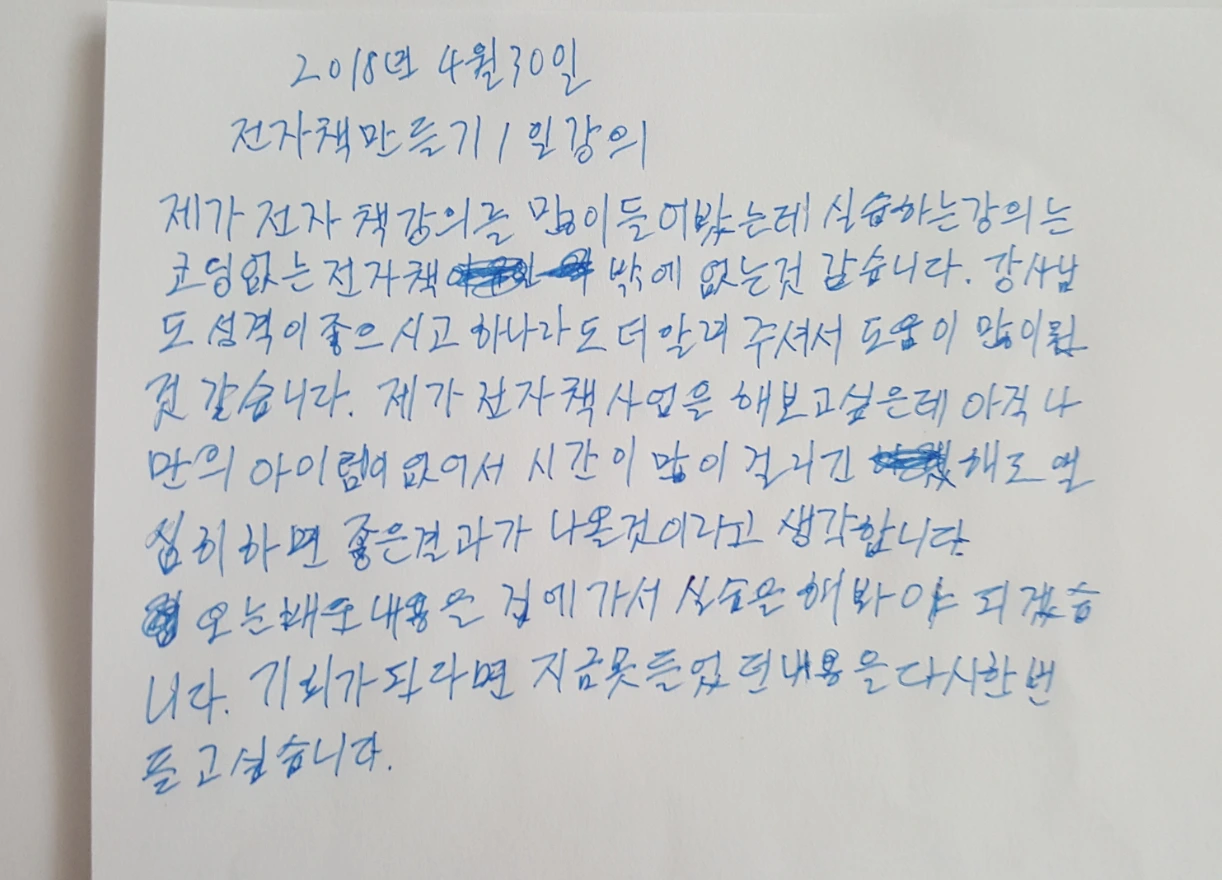 2018년 4월 30일
전자책만들기 1일강의
제가 전자 책강의를 많이들어봤는데 실습하는강의는
코딩없는전자책 밖에 없는것 같습니다. 강사님
도 성격이좋으시고 하나라도 더알려 주셔서 도움이 많이될
것 같습니다. 제가 전자책사업을 해보고싶은데 아직 나
만의 아이템이 없어서 시간이 많이 걸리긴 해도 열
심히하면 좋은결과가 나올것이라고 생각합니다
오는배운내용을 집에가서 실습은해봐야 되겠습
니다. 기회가 된다면 지금못들었던내용을다시한번
듣고싶습니다.